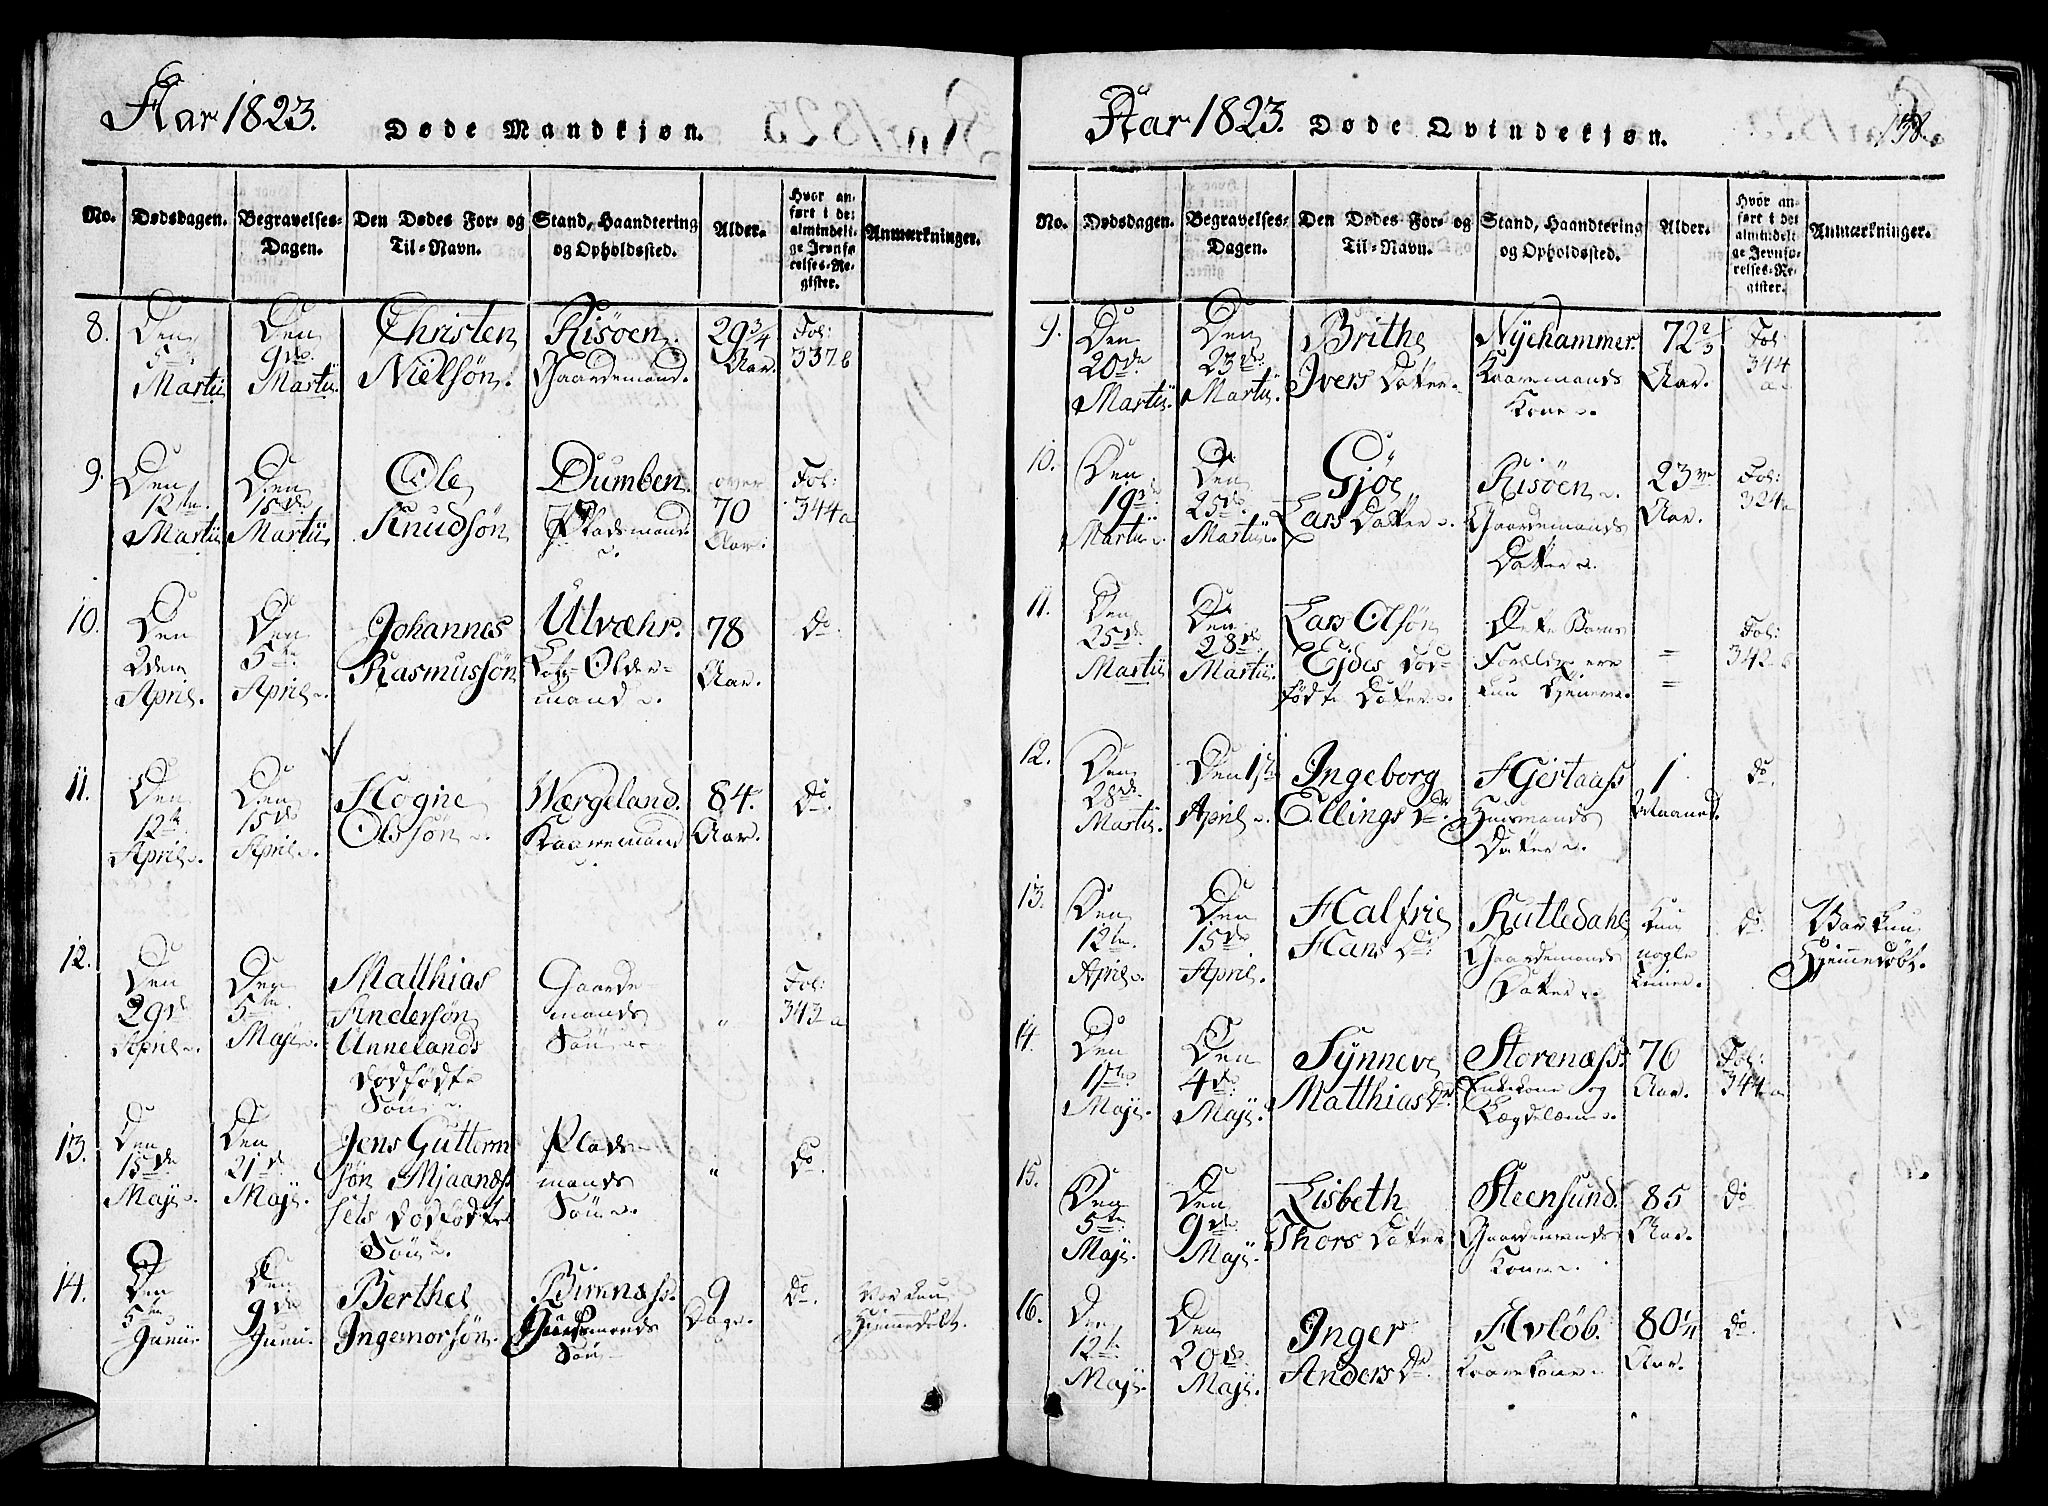 Aar 1823.
Døde Mandkjøn.
No.
Dødsdagen.
Begravelses-
Dagen.
Den Dødes For- og
Til-Navn.
Stand, Haandtering
og Opholdssted.
Alder.
Hvor an-
ført i det
almindeli-
ge Jevnfø-
relses-Re-
gister.
Anmærkninger.
8.
Den
5te
Martii
Den
9de
Martii.
Christen
Nielsøn.
Risøen.
Gaardemand.
29 3/4
Aar.
Fol:
337 b
9.
Den
12te
Martii
Den
15de
Martii
Ole
Knudsøn
Dumben.
Pladsmand
over
70
Aar.
Fol:
344 a
10.
Den
2den
April.
Den
5te
April.
Johannes
Rasmussøn
Utvæhr.
Lots-Older-
mand.
78
Aar.
Do.
11.
Den
12te
April.
Den
15de
April.
Hogne
Olssøn.
Wærgeland.
Kaaremand
84.
Aar.
Do.
12.
Den
29de
April.
Den
5te
Maji.
Matthias
Andersøn
Unnelands
dødfødte
Søn.
Gaarde-
mands
Søn.
"
Fol:
343 a
13.
Den
15de
Maji.
Den
21de
Maji.
Jens Gutterm
søn Mjaanæs-
sets dødfødte
Søn.
Plads-
mands
Søn.
"
Do.
14.
Den
5te
Junii
Den
9de
Junii.
Berthel
Ingemorsøn.
Birenæss.
Huusmands
Søn
9
Dage.
Do.
Var kun
Hjemmedøbt.
Aar 1823.
Døde Qvindekjøn.
138.
No.
Dødsdagen.
Begravelses-
Dagen.
Den Dødes For- og
Til-Navn.
Stand, Haandtering
og Opholdssted.
Alder.
Hvor an-
ført i det
almindeli-
ge Jevnfø-
relses-Re-
gister.
Anmærkninger.
9.
Den
20de
Martii.
Den
23de
Martii.
Brithe
Ivers Datter.
Nyehammer.
Kaaremands
Kone.
72 2/3
Aar.
Fol:
344
a
10.
Den
19de
Martii.
Den
25de
Martii.
Gjøe
Lars Datter.
Risøen.
Gaardemands
Datter.
23
Aar.
Fol:
324 a
11.
Den
25de
Martii
Den
28de
Martii.
Lars Olsøn
Ejdes død-
fødte Datter.
Dette Barns
Forældre ere
kun Tjenere.
=
=
Fol:
342 b
12.
Den
28de
Martii.
Den 1ste
April.
Ingeborg
Ellings Dr.
Hjertaass
Huusmands
Datter.
1
Maaned.
Do.
13.
Den
12te
April.
Den
15de
April.
Halfrie
Hans Dr.
Rutledahl
Gaardemands
Datter.
Kun
nogle
Timer.
Do.
Var kun
Hjemmedøbt.
14.
Den
1ste
Maji.
Den
4de
Maji.
Synneve
Matthias Dr.
Storenæss.
Enkekone og
Lægdslem.
76
Aar.
Fol:
344 a
15.
Den
5te
Maji.
Den
9de
Maji.
Lisbeth
Thors Datter
Steensund.
Gaardemands
Kone.
85
Aar.
Do
16.
Den
12te
Maji.
Den
20de
Maji.
Inger
Anders Dr.
Avløb.
Kaarekone.
80 1/4
Aar.
Do.